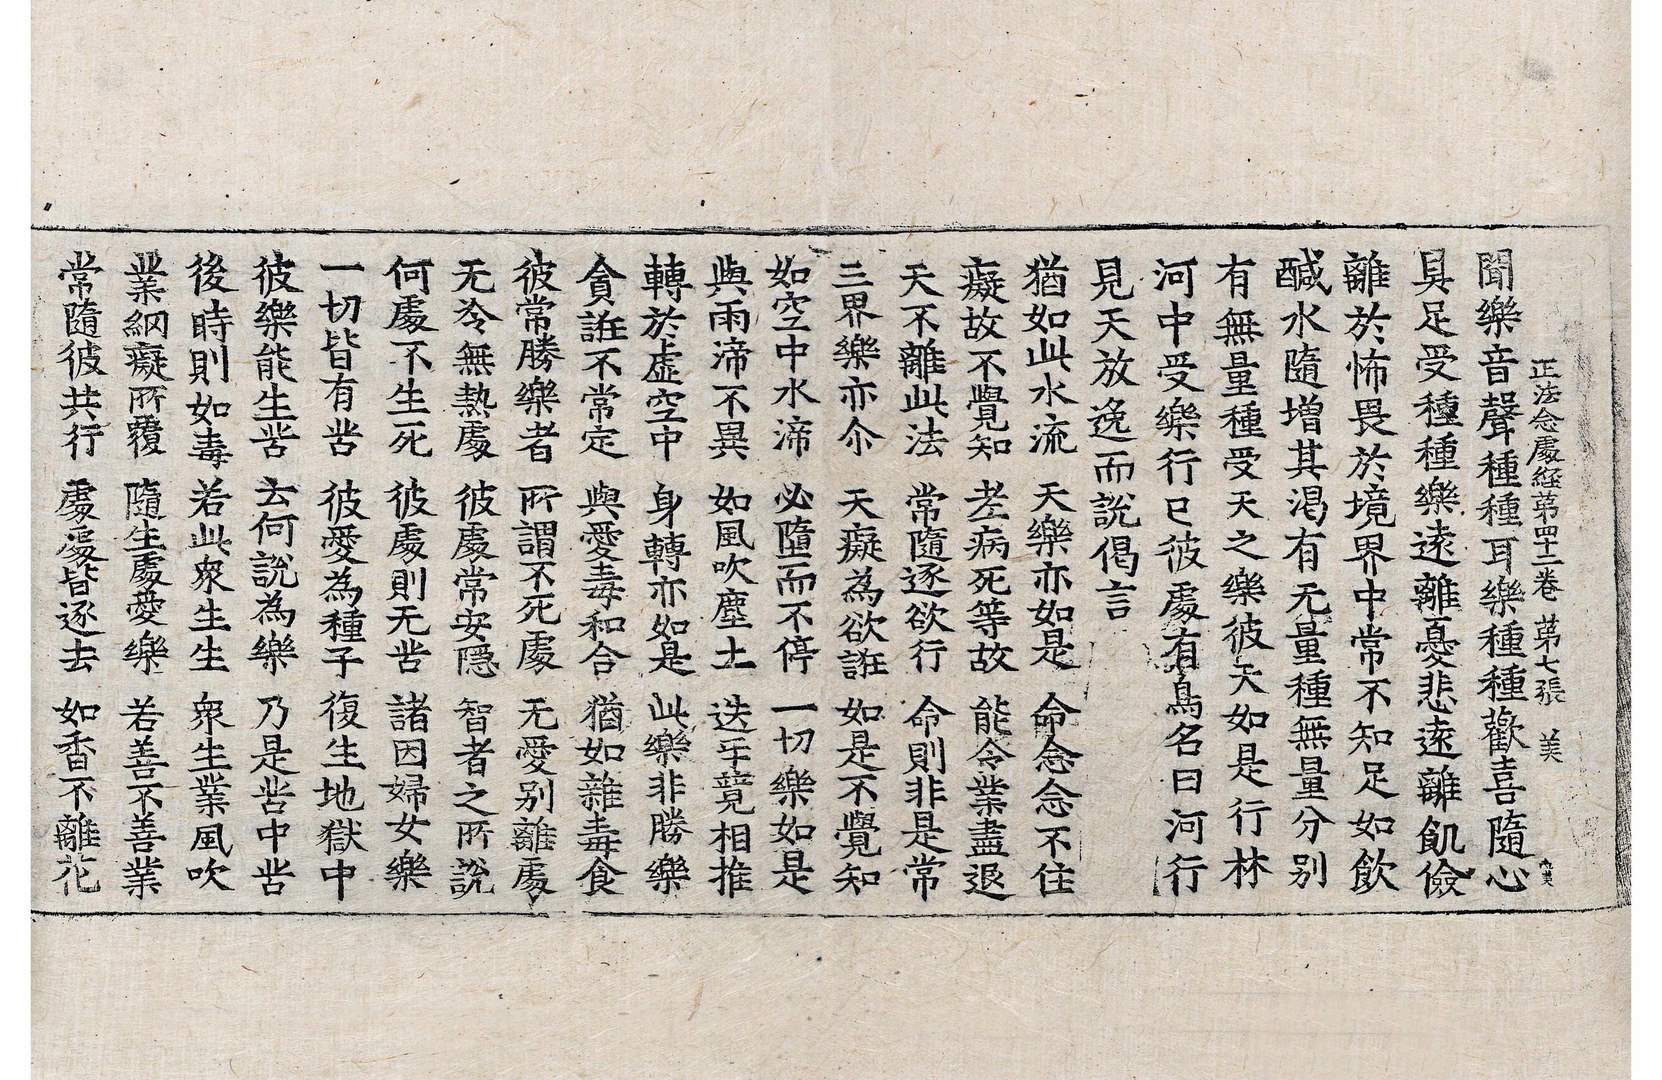 正法念處經第四十二卷 第七張 美
聞樂音聲種種耳樂種種歡喜隨心
具足受種種樂遠離憂悲遠離飢儉
離於怖畏於境界中常不知足如飲
醎水隨增其渴有无量種無量分别
有無量種受天之樂彼天如是行林
河中受樂行已彼處有鳥名曰河行
見天放逸而說偈言
猶如此水流 天樂亦如是 命念念不住
癡故不覺知 老病死等故 能令業盡退
天不離此法 常隨逐欲行 命則非是常
三界樂亦尒 天癡為欲誑 如是不覺知
如空中水渧 必墮而不停 一切樂如是
與雨渧不異 如風吹塵土 迭牙竟相推
轉於虛空中 身轉亦如是 此樂非勝樂
貪誑不常定 與愛毒和合 猶如雜毒食
彼常勝樂者 所謂不死處 无愛别離處
无冷無熱處 彼處常安隱 智者之所說
何處不生死 彼處則无苦 諸因婦女樂
一切皆有苦 彼愛為種子 復生地獄中
彼樂能生苦 云何說為樂 乃是苦中苦
後時則如毒 若此衆生生 衆生業風吹
業網癡所覆 隨生處愛樂 若善不善業
常隨彼共行 處處皆逐去 如香不離花